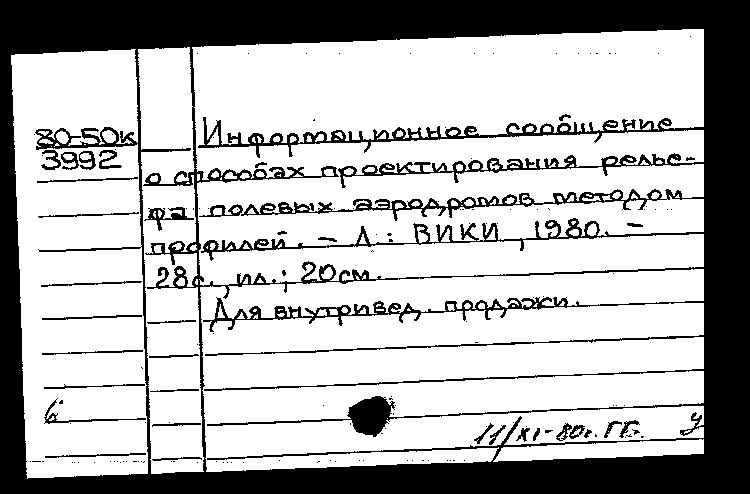 80-50к
3992
Информационное сообщение
о способах проектирования релье-
фа полевых аэродромов методом
профилей. – Л.: ВИКИ, 1980. –
28с., ил.; 20см.
Для внутривед. продажи.
11/XI-80г. ГГ. У